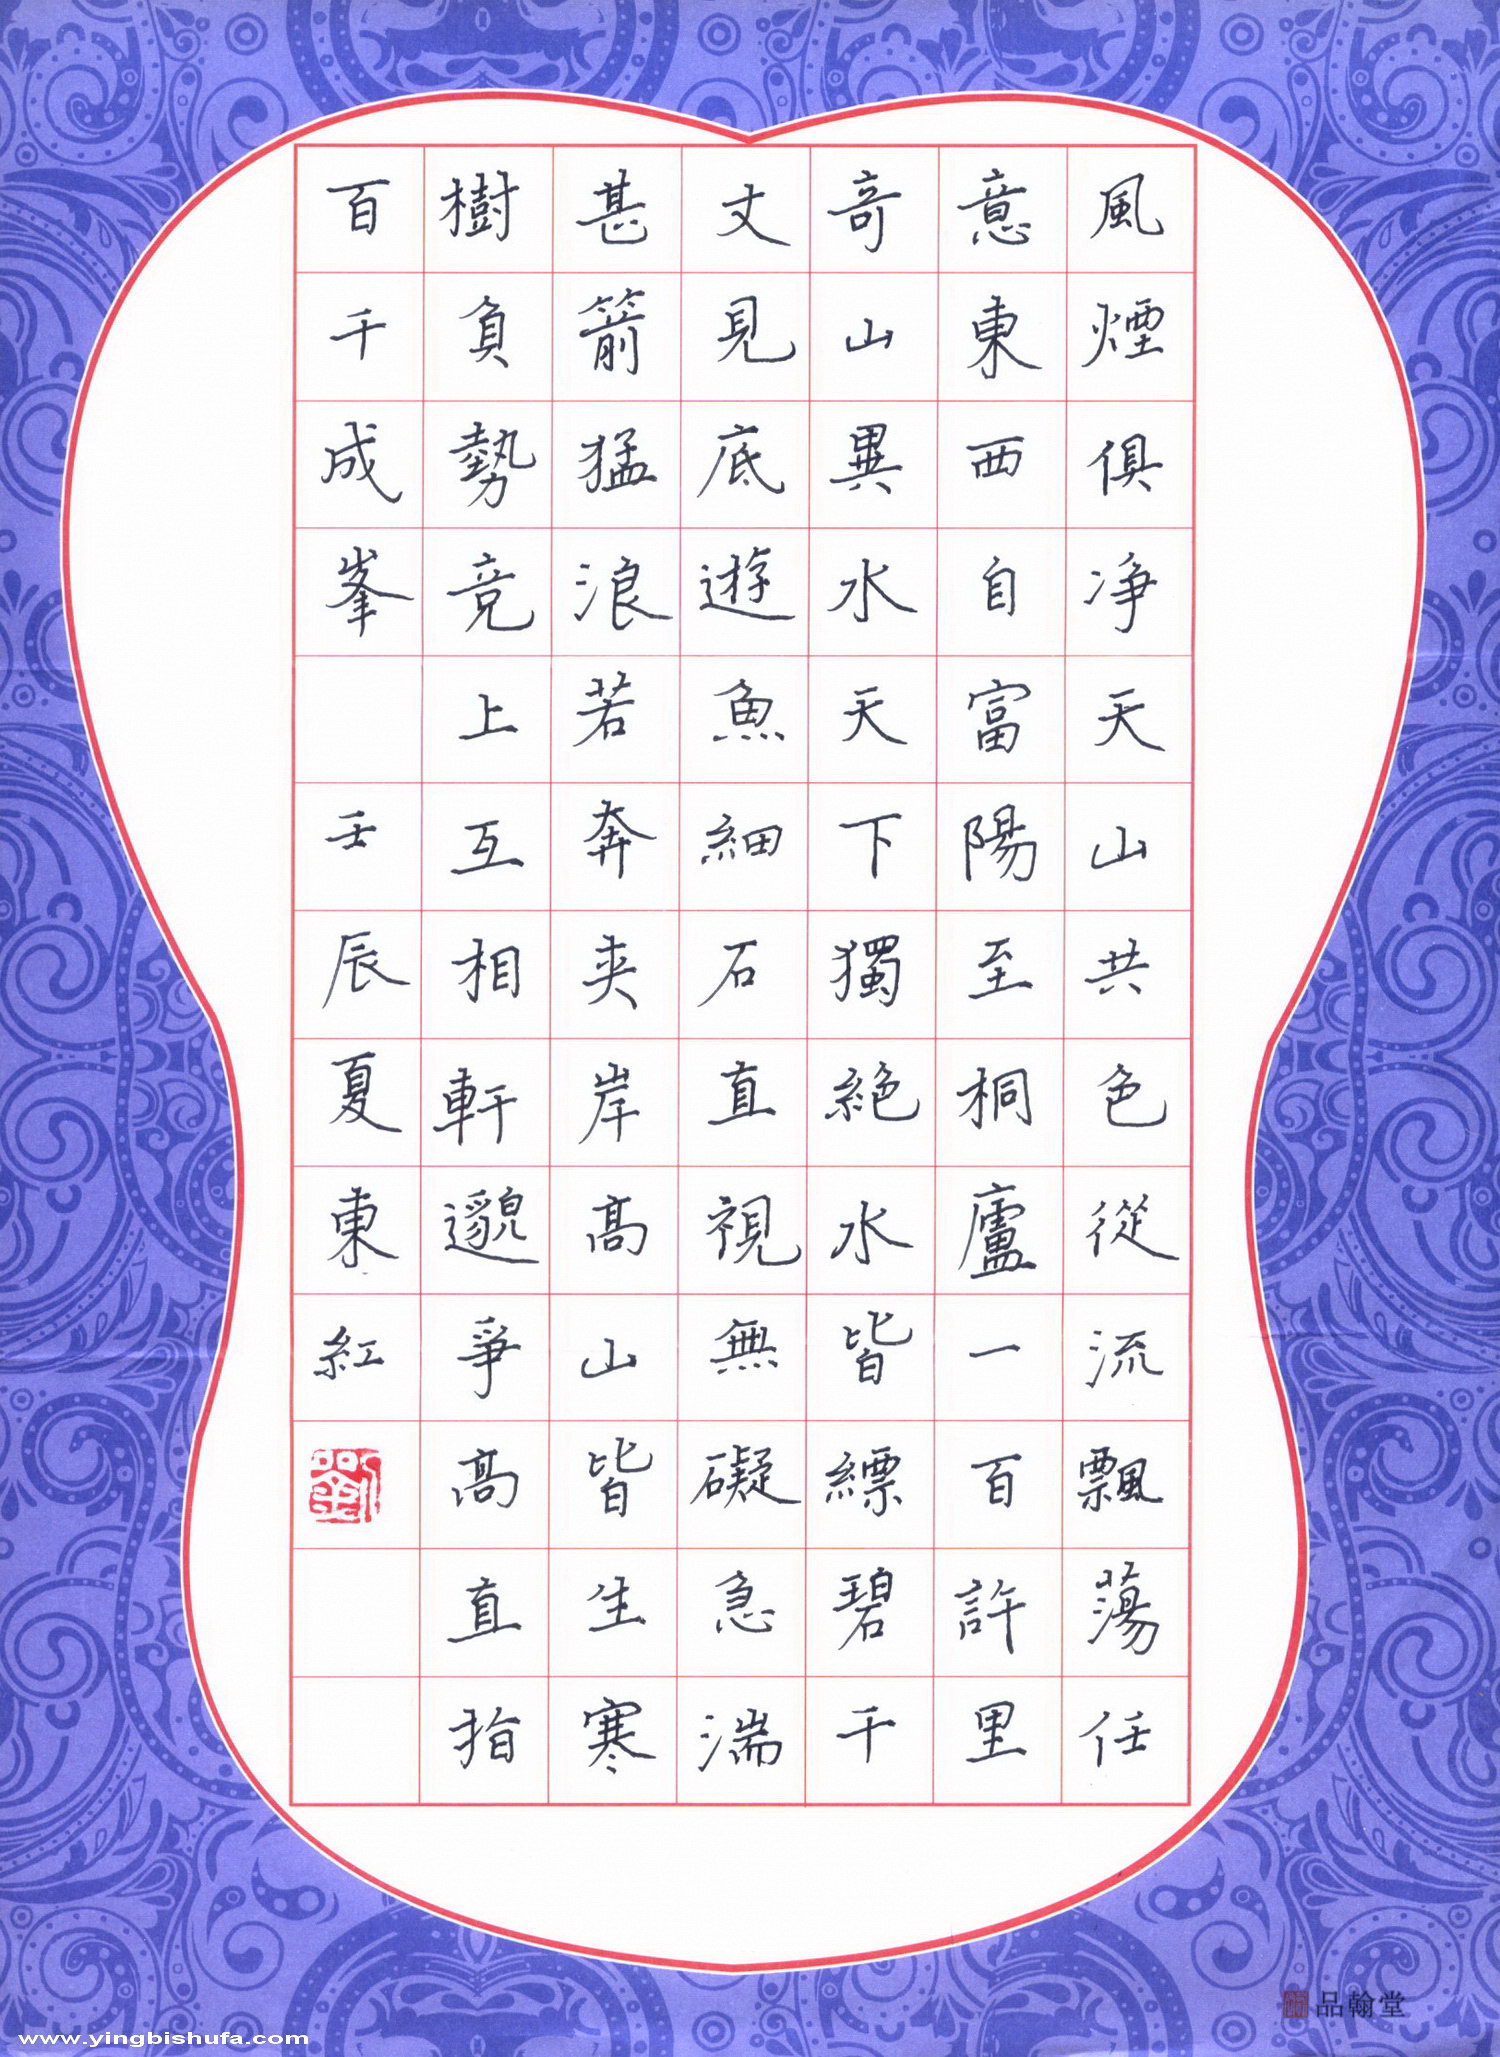 風煙俱凈天山共色從流飄蕩任
意東西自富陽至桐廬一百許里
奇山異水天下獨絕水皆縹碧千
丈見底遊魚細石直視無礙急湍
甚箭猛浪若奔夾岸高山皆生寒
樹負勢競上互相軒邈爭高直指
百千成峯 壬辰夏東紅
劉
品翰堂
www.yingbishufa.com